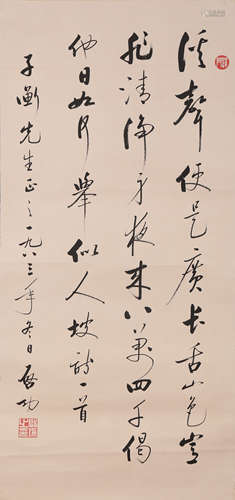 溪聲便是廣長舌山色豈
非清淨身夜來八萬四千偈
他日如何舉似人坡詩一首
子衡先生正之一九八三年冬日啟功